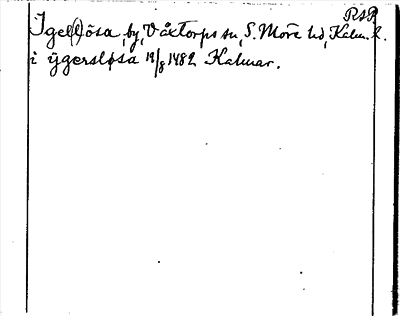 RAP
Igel(l)ösa, by, Växtorps sn, S. Möre hd, Kalm. l.
i ÿgersløsa 19/8 1482 Kalmar.